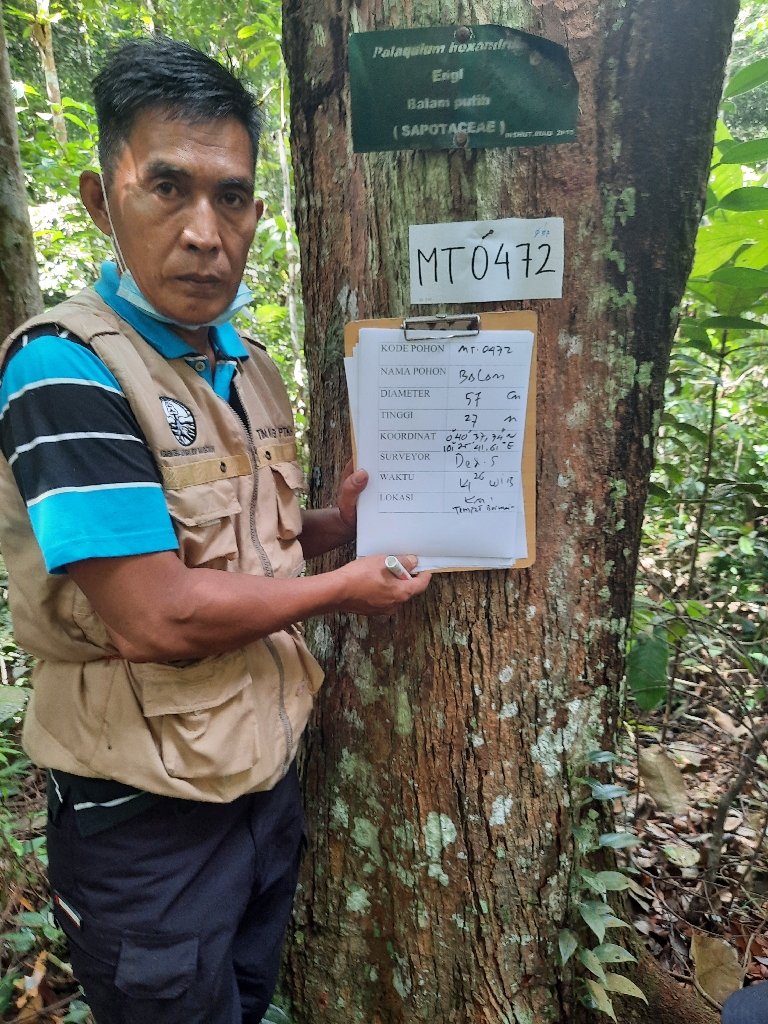 Palaquium hexandrum
Engl
Balam putih
( SAPOTACEAE )
MT 0472
KODE POHON MT-0472
NAMA POHON Balam
DIAMETER 57 Cm
TINGGI 27 m
KOORDINAT 0°40'37,34"N
101°25'41,61"E
SURVEYOR
WAKTU WIB
LOKASI